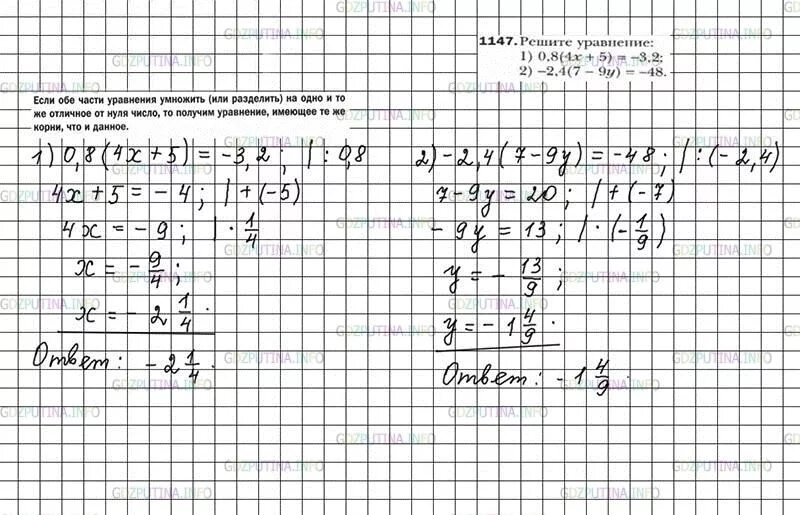 1147. Решите уравнение:
1) 0,8(4x + 5) = –3,2;
2) –2,4(7 – 9y) = –48.
Если обе части уравнения умножить (или разделить) на одно и то
же отличное от нуля число, то получим уравнение, имеющее те же
корни, что и данное.
1) 0,8(4x+5) = -3,2; | : 0,8
4x+5 = -4; | +(-5)
4x = -9; | · 1/4
x = - 9/4;
x = - 2 1/4.
Ответ: -2 1/4.
2) -2,4(7-9y) = -48; | : (-2,4)
7-9y = 20; | +(-7)
-9y = 13; | · (-1/9)
y = - 13/9;
y = - 1 4/9.
Ответ: -1 4/9.
GDZPUTINA.INFO